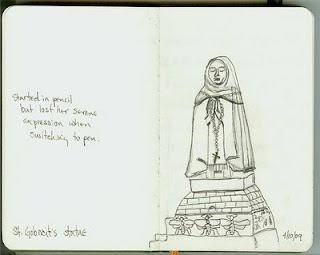 Started in pencil
but lost her serene
expression when
switching to pen.
St. Gobnait's statue
4/10/09